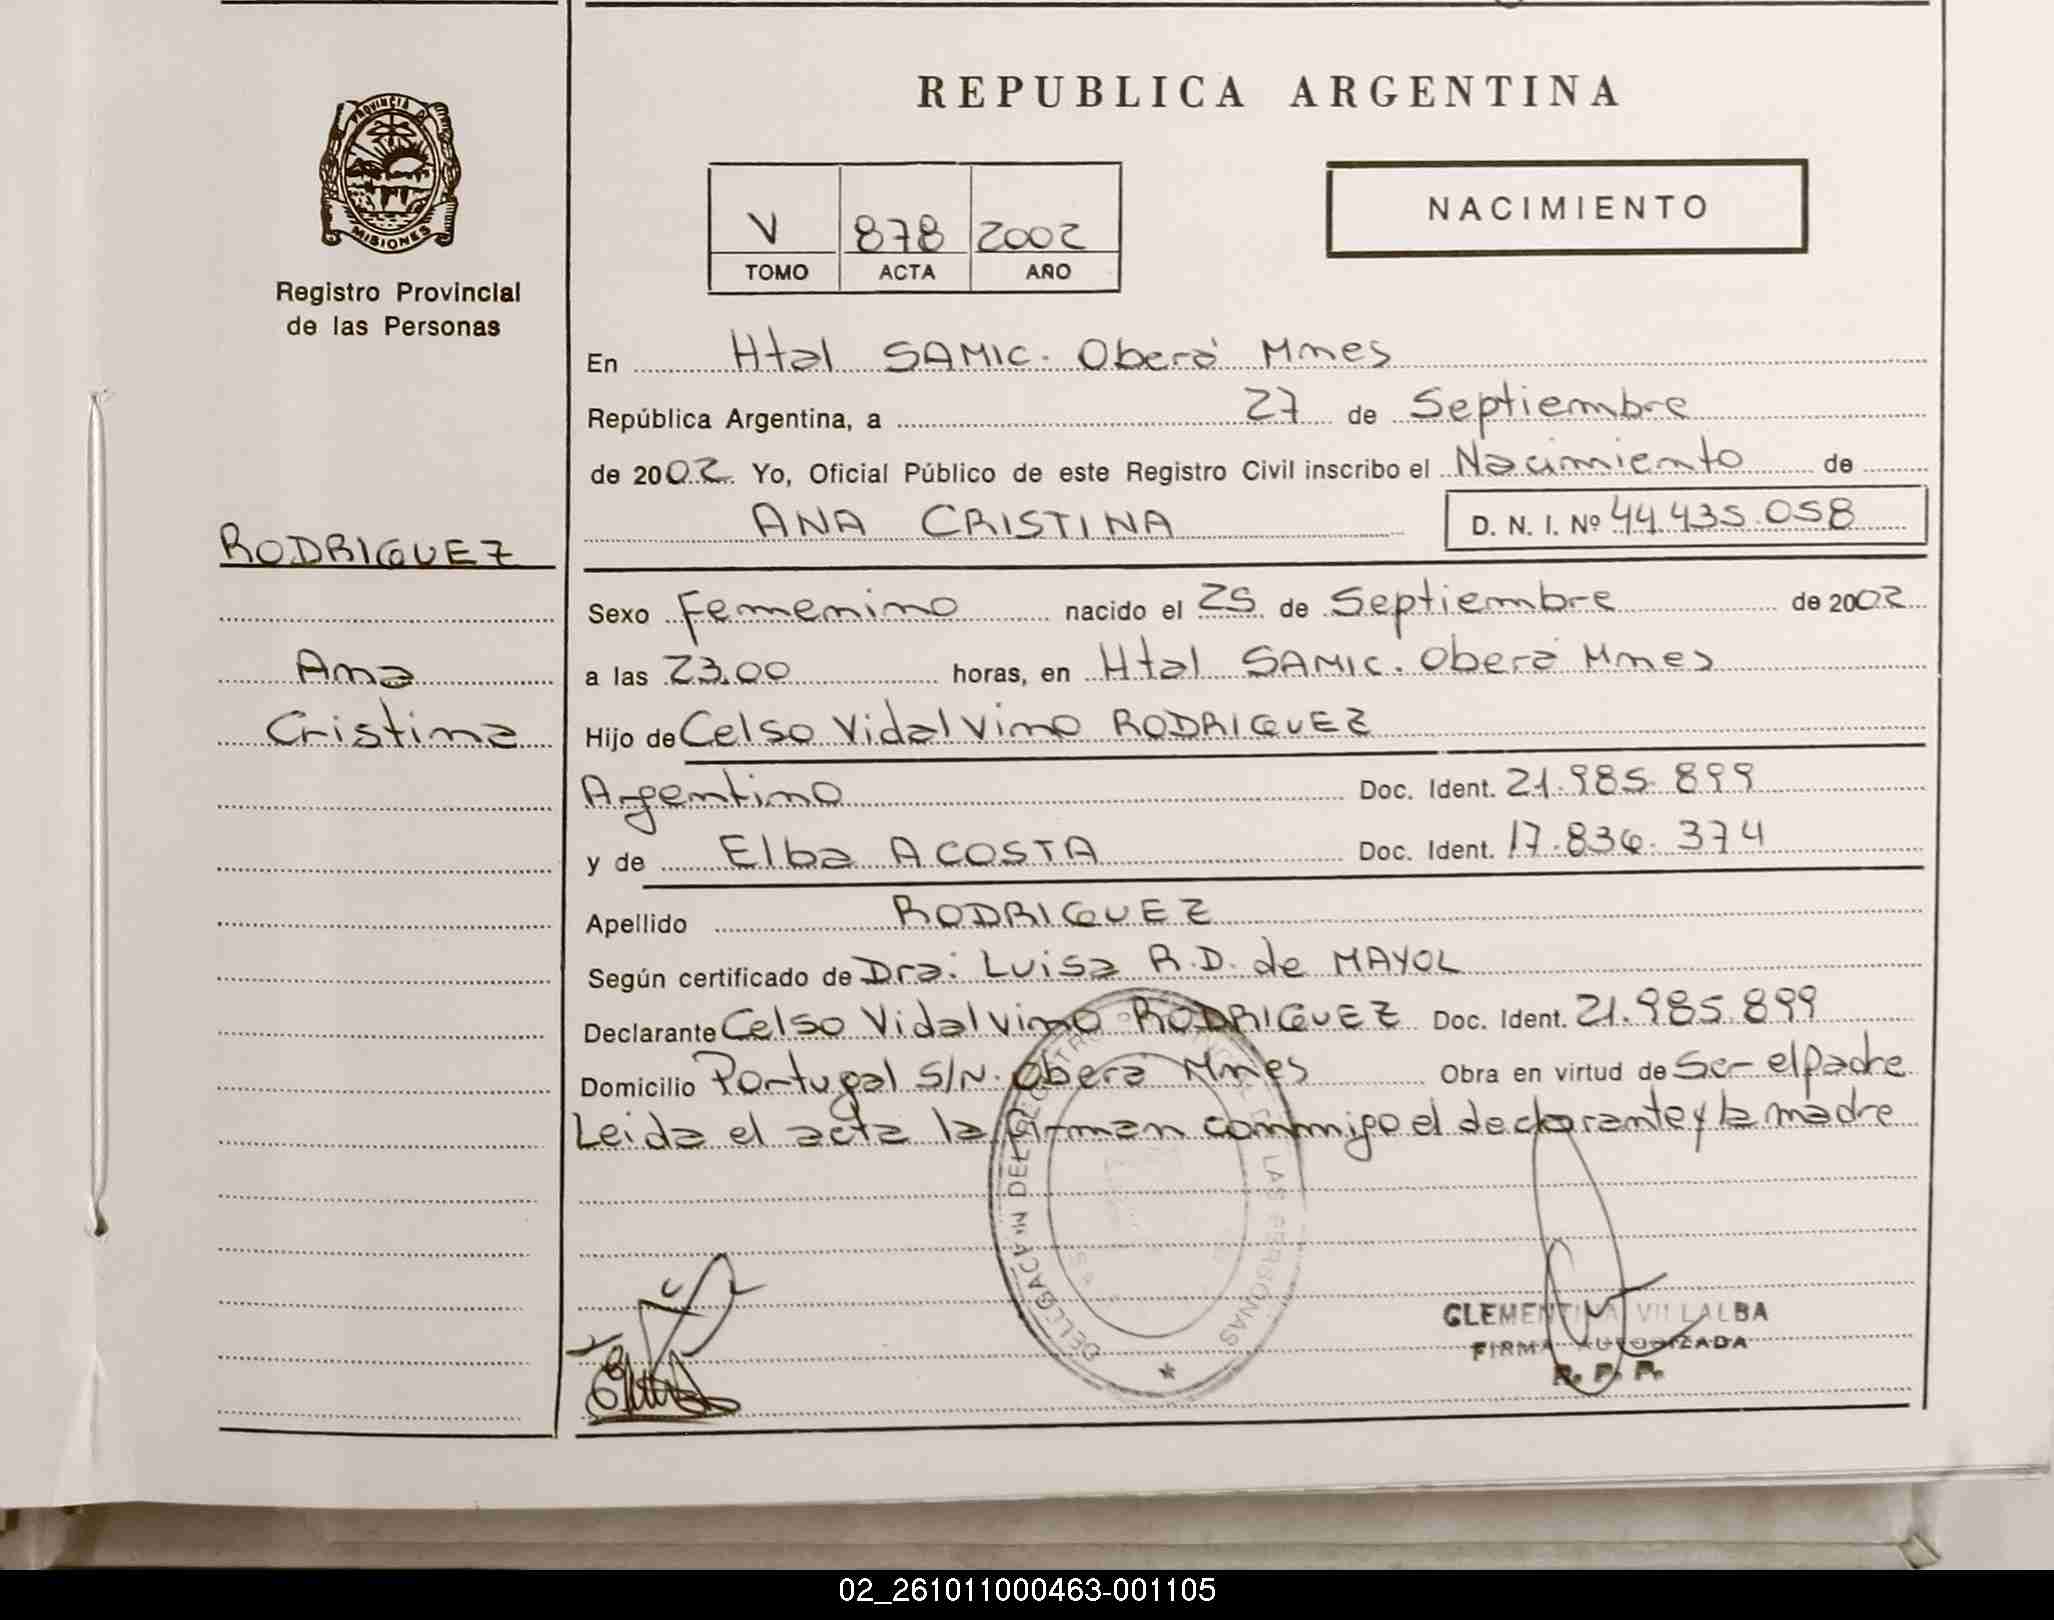 REPUBLICA ARGENTINA
PROVINCIA DE
MISIONES
Registro Provincial
de las Personas
V 878 2002
TOMO ACTA AÑO
NACIMIENTO
En Htal SAMIC. Oberá Mnes
República Argentina, a 27 de Septiembre
de 2002. Yo, Oficial Público de este Registro Civil inscribo el Nacimiento de
ANA CRISTINA D. N. I. Nº 44.435.058
RODRIGUEZ
Ana
Cristina
Sexo Femenino nacido el 25 de Septiembre de 2002
a las 23.00 horas, en Htal SAMIC. Oberá Mnes
Hijo de Celso Vidalvino RODRIGUEZ
Argentino Doc. Ident. 21.985.899
y de Elba ACOSTA Doc. Ident. 17.836.374
Apellido RODRIGUEZ
Según certificado de Dra: Luisa R.D. de MAYOL
Declarante Celso Vidalvino RODRIGUEZ Doc. Ident. 21.985.899
Domicilio Portugal S/N. Oberá Mnes Obra en virtud de Ser el Padre
Leida el acta la firman conmigo el declarante y la madre
DELEGACION DEL REGISTRO PROVINCIAL DE LAS PERSONAS
CLEMENTINA VILLALBA
FIRMA AUTORIZADA
R. P. P.
02_261011000463-001105